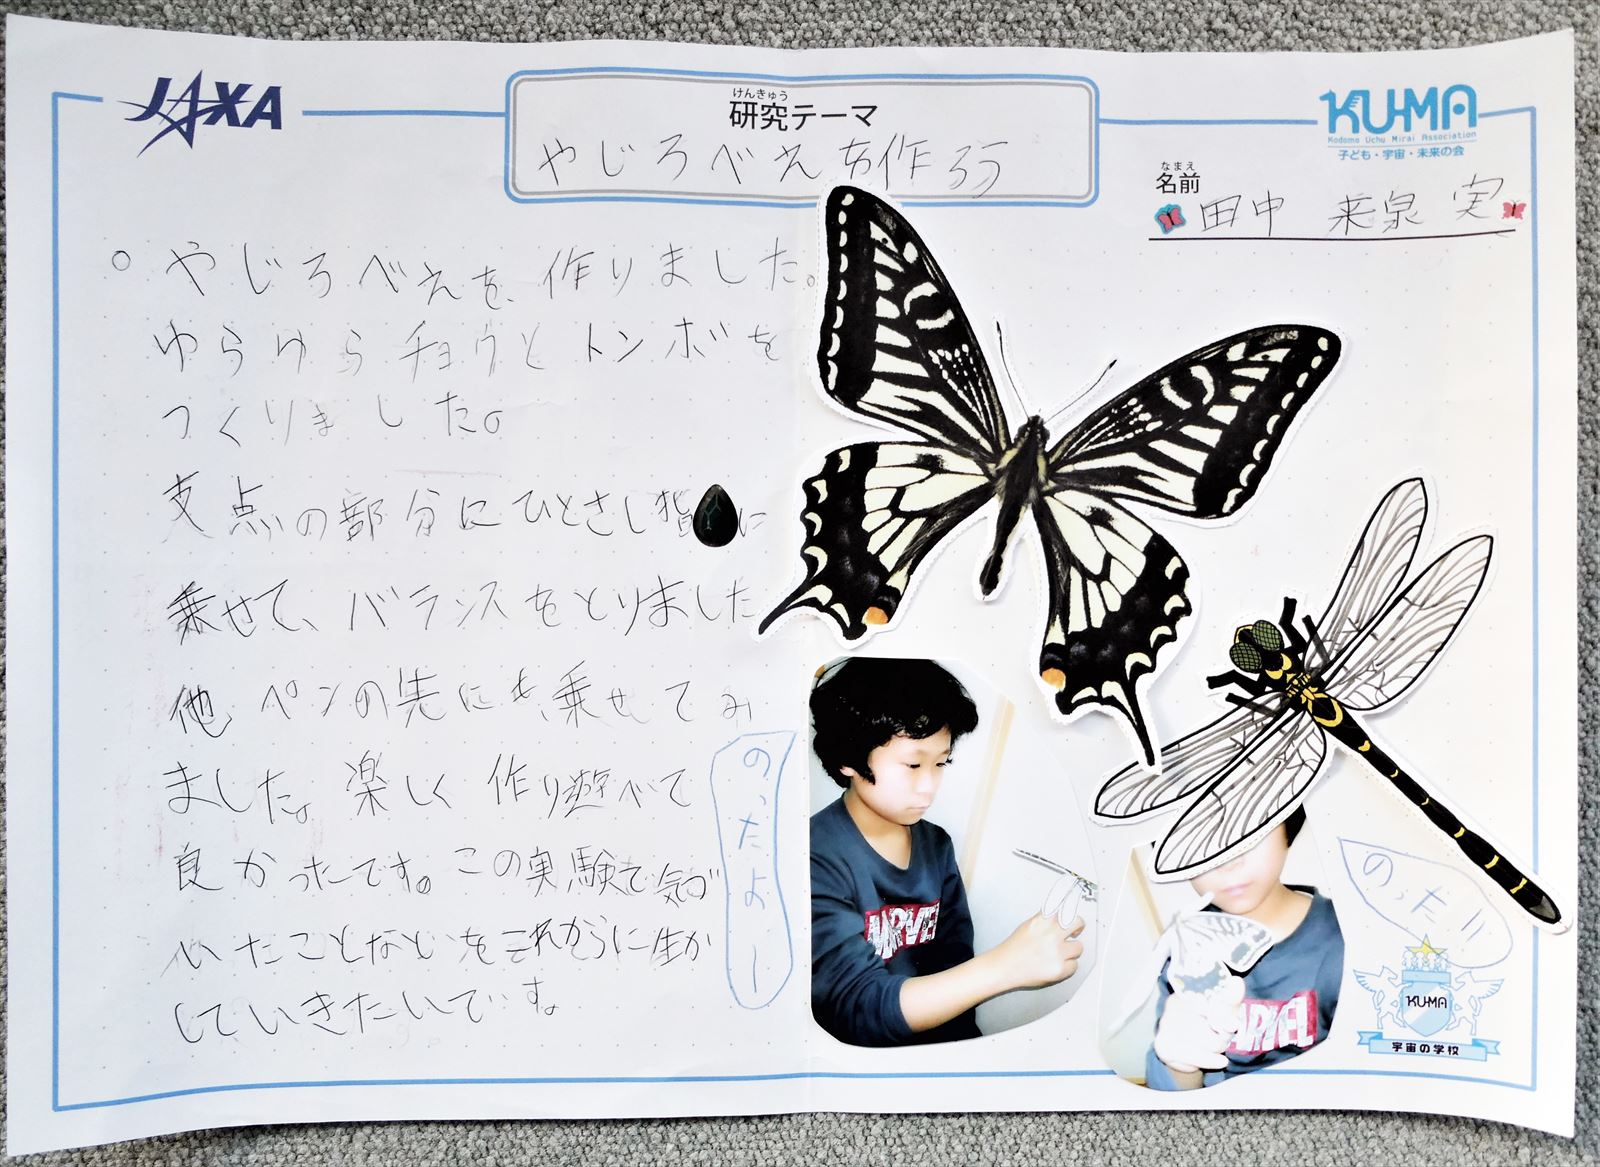 JAXA
けんきゅう
研究テーマ
やじろべえを作ろう
KU-MA
Kodomo Uchu Mirai Association
子ども・宇宙・未来の会
なまえ
名前
田中 来泉 実
。やじろべえを、作りました。
ゆらゆらチョウとトンボを
つくりました。
支点の部分にひとさし指に
乗せて、バランスをとりました
他ペンの先にも、乗せてみ
ました。楽しく作り遊べて
良かったです。この実験で気づ
いたことなどをこれからに生か
していきたいです。
のったよー
のった!!
MARVEL
ARVEL
KU-MA
宇宙の学校